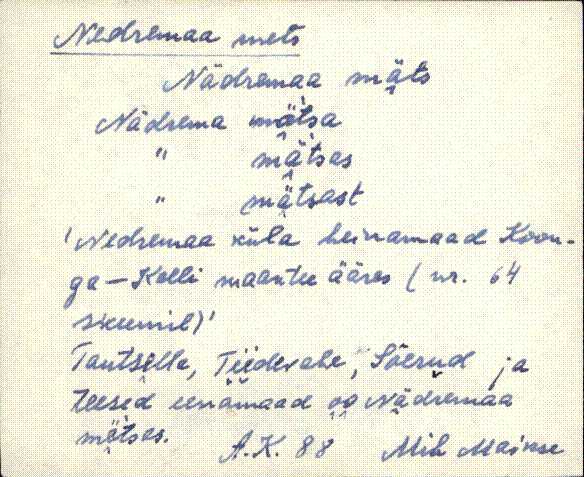 Nedremaa mets
Nädremaa mäts
Nädrema mätsa
" mätses
" mätsast
'Nedremaa küla heinamaad Koon-
ga—Kalli maantee ääres (nr. 64
skeemil)'
Tautsille, Tiidevahe, Sõerud ja
teesed eenämaad oo Nädremaa
mätses.
A.K. 88 Mih